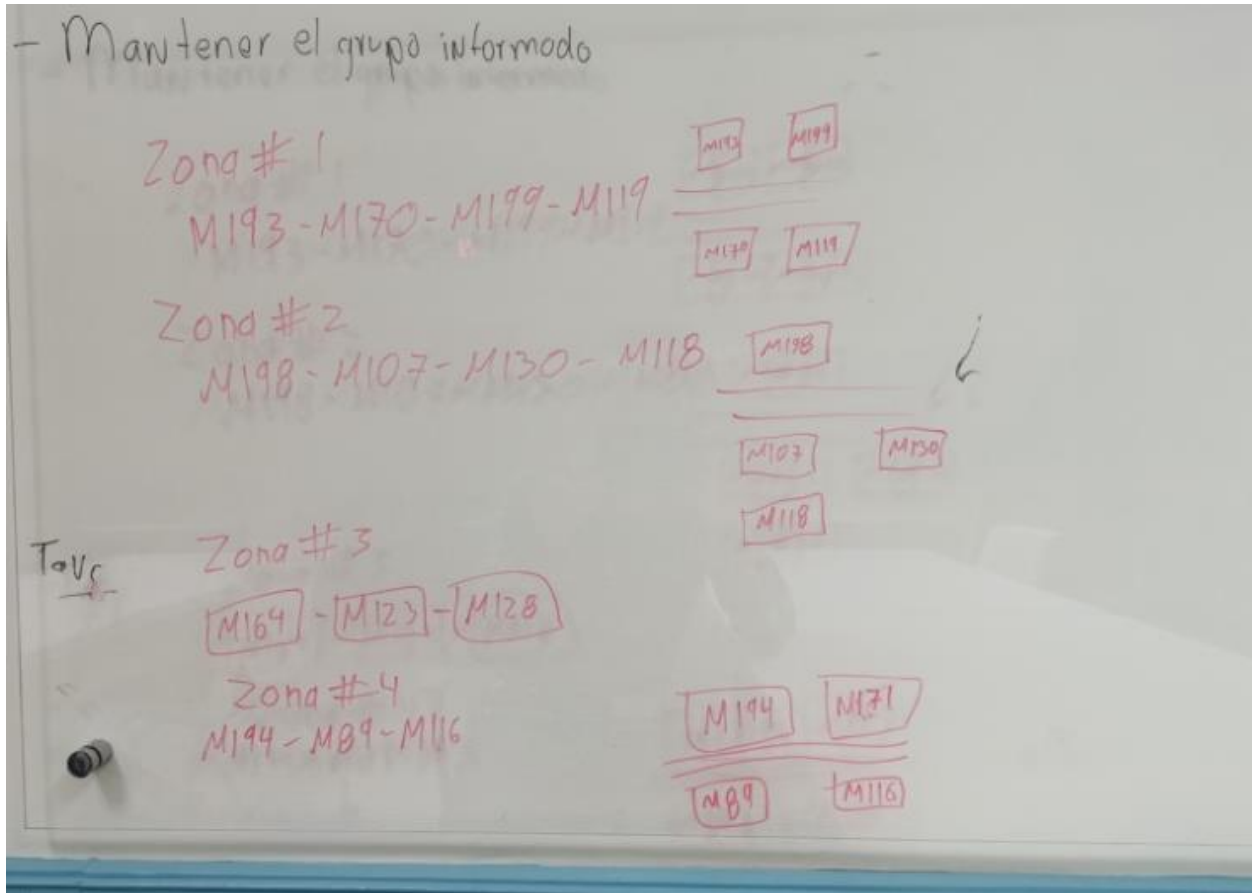 - Mantener el grupo informodo
Zona # 1
M193 M199
M193 - M170 - M199 - M119
M170 M119
Zona # 2
M198
M198 - M107 - M130 - M118
M107 M130
M118
Zona # 3
M164 - M123 - M128
Zona # 4
M194 M171
M194 - M89 - M116
M89 M116